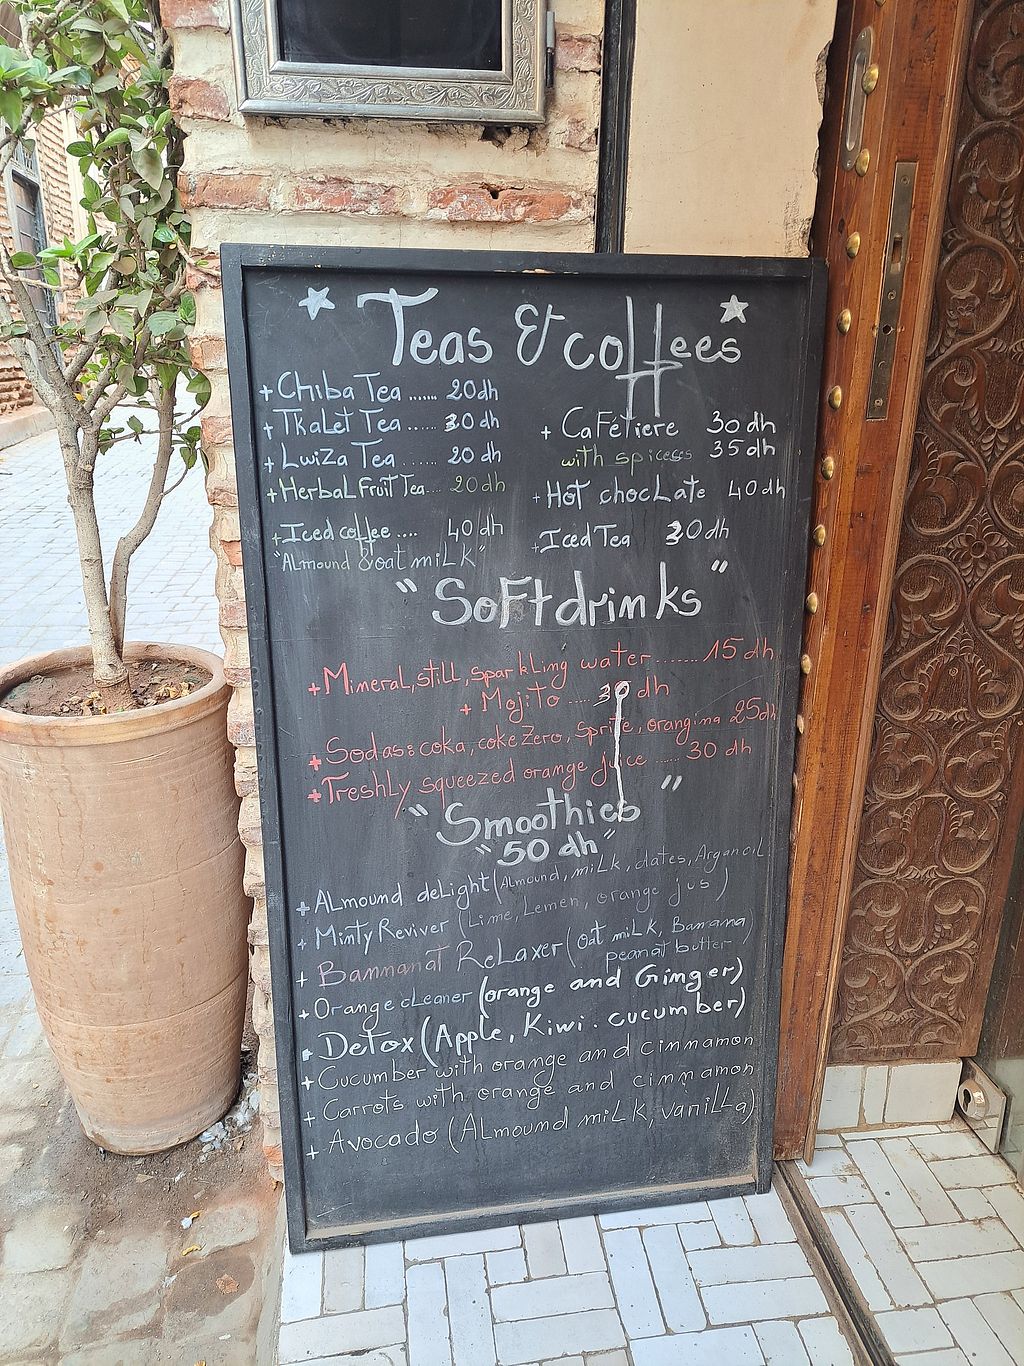 Teas & coffees
+ Chiba Tea ....... 20dh
+ TKaLeT Tea ..... 30 dh
+ LwiZa Tea ...... 20 dh
+ HerbaL Fruit Tea ... 20 dh
+ Iced coffee .... 40 dh
"Almound & oat miLK"
+ CaFeTiere 30 dh
with spicess 35 dh
+ HoT chocLate 40 dh
+ Iced Tea 30 dh
"SoFt drinks"
+ MineraL, still, sparkLing water ....... 15 dh
+ Mojito ..... 30 dh
+ Sodas: coka, coke Zero, Sprite, orangina 25dh
+ Treshly squeezed orange juice ...... 30 dh
"Smoothies"
"50 dh"
+ ALmound deLight (Almound, miLk, dates, Argan oiL
+ Minty Reviver (Lime, Lemen, orange jus)
+ Bannanat ReLaxer (Oat miLK, Banana,
peanat butter)
+ Orange cLeaner (orange and Ginger)
+ DeTox (Apple, Kiwi. cucumber)
+ Cucumber with orange and cinnamon
+ Carrots with orange and cinnamon
+ Avocado (ALmound miLK, vaniLLa)